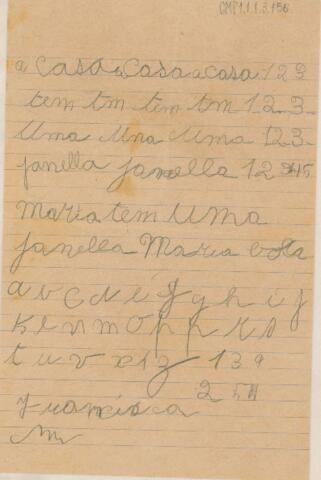 CMP1.1.1.3.156
a casa a casa a casa 123
tem tm tem tm 123
Uma Una Uma 123
janella janella 12345
Maria tem Uma
janella Maria
a v c d e f g h i j
k l n m o p p r s
t u v x i z 139
2 54
Francisca